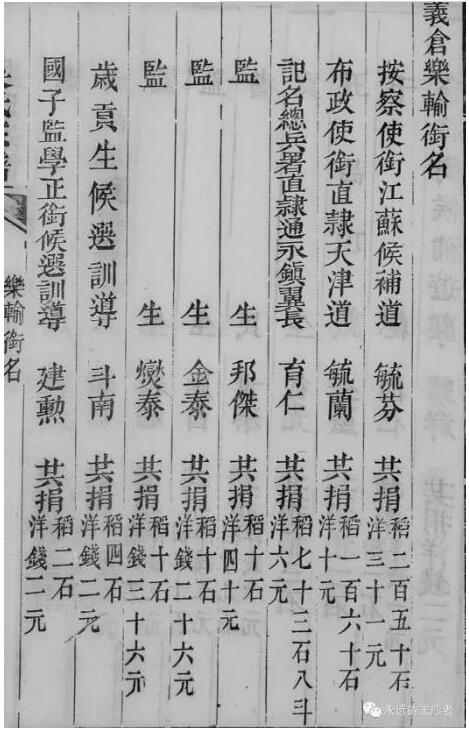 義倉樂輸銜名
按察使銜江蘇候補道 毓芬 共捐稻二百五十石洋三十一元
布政使銜直隸天津道 毓蘭 共捐稻一百六十石洋十元
記名總兵署直隸通永鎮翼長 育仁 共捐稻七十三石八斗洋六元
監生 邦傑 共捐稻十石洋四十元
監生 金泰 共捐稻十石洋錢二十六元
監生 燮泰 共捐稻十石洋錢三十六元
歲貢生候選訓導 斗南 共捐稻四石洋錢二元
國子監學正銜候選訓導 建勲 共捐稻二石洋錢二元
樂輸銜名
永远的志愿者